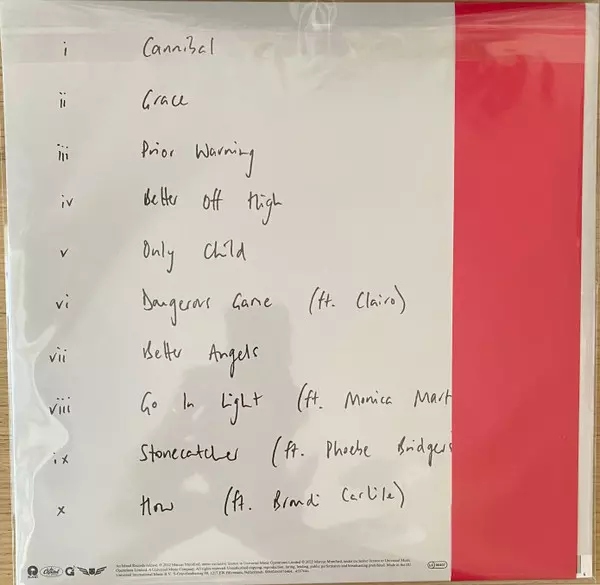 i Cannibal
ii Grace
iii Prior Warning
iv Better Off High
v Only Child
vi Dangerous Game (ft. Clairo)
vii Better Angels
viii Go In Light (ft. Monica Mart
ix Stonecatcher (ft. Phoebe Bridgers
x How (ft. Brandi Carlile)